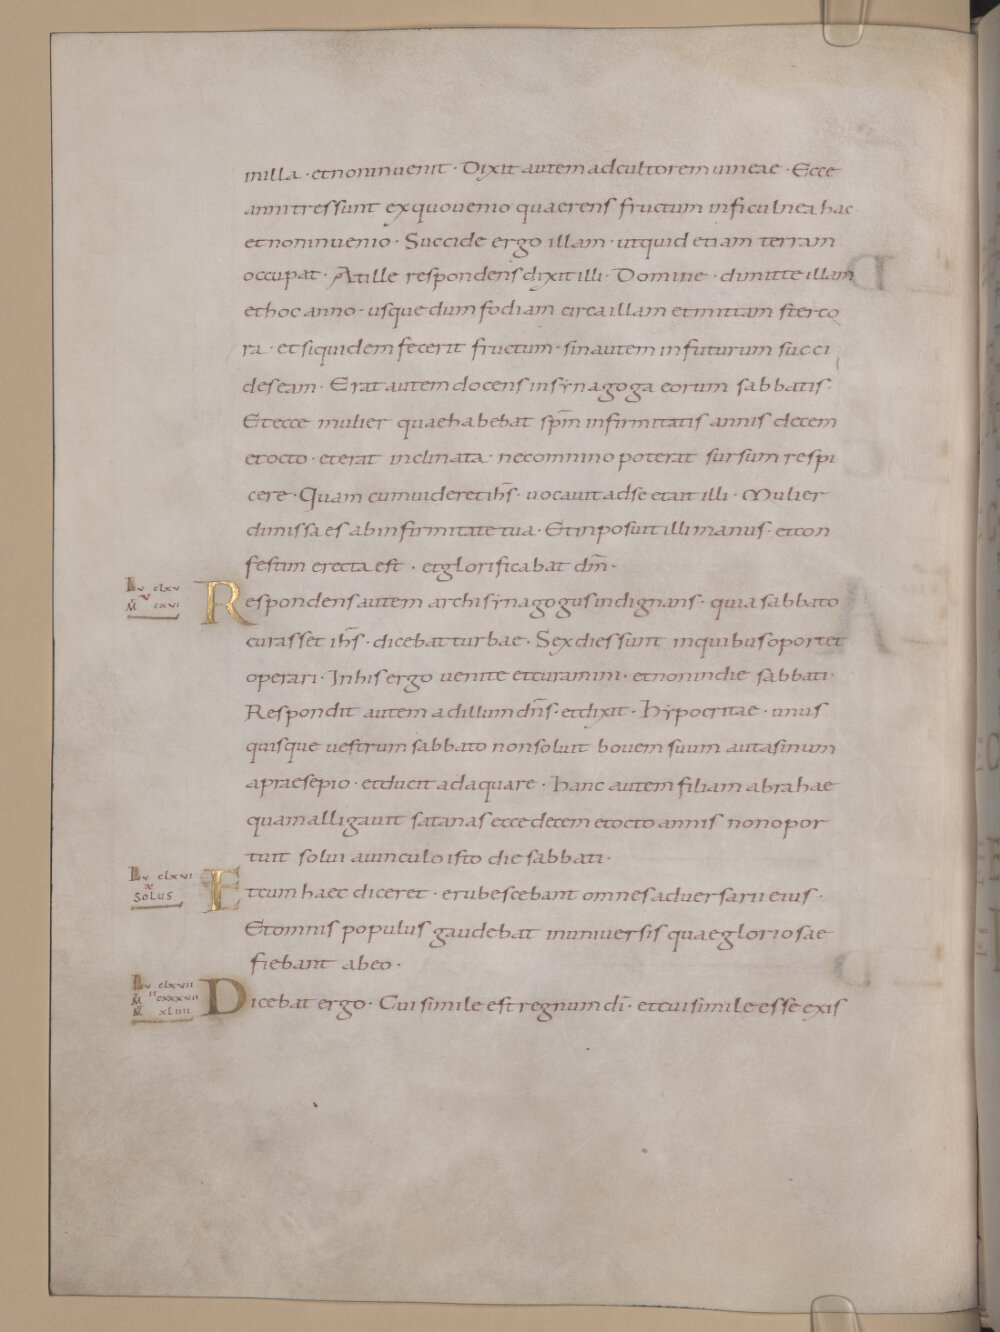 in illa · et non invenit · Dixit autem ad cultorem uineae · Ecce
anni tres sunt ex quo uenio quaerens fructum in ficulnea hac
et non inuenio · Succide ergo illam · ut quid etiam terram
occupat · At ille respondens dixit illi · Domine · dimitte illam
et hoc anno · usque dum fodiam circa illam et mittam sterco
ra · et siquidem fecerit fructum · sin autem in futurum succi
des eam · Erat autem docens in synagoga eorum sabbatis ·
Et ecce mulier quae habebat spm̅ infirmitatis annis decem
et octo · et erat inclinata · nec omnino poterat sursum respi
cere · Quam cum uideret ih̅s · uocauit ad se et ait illi · Mulier
dimissa es ab infirmitate tua · Et inposuit illi manus · et con
festim erecta est · et glorificabat dm̅ ·
Lv clxv
v
M̅ cxvi
Respondens autem archisynagogus indignans · quia sabbato
curasset ih̅s · dicebat turbae · Sex dies sunt in quibus oportet
operari · In his ergo uenite et curamini · et non in die sabbati ·
Respondit autem ad illum dn̅s · et dixit · Hypocritae · unus
quisque uestrum sabbato non soluit bouem suum aut asinum
a praesepio · et ducit adaquare · Hanc autem filiam abrahae
quam alligauit satanas ecce decem et octo annis non opor
tuit solui a uinculo isto die sabbati ·
Lv clxvi
x
SOLUS
Et cum haec diceret · erubescebant omnes aduersarii eius ·
Et omnis populus gaudebat in uniuersis quae gloriosae
fiebant ab eo ·
Lv clxvii
ii
M̅ cxxxvii
M̅ xliiii
Dicebat ergo · Cui simile est regnum di̅ · et cui simile esse exis